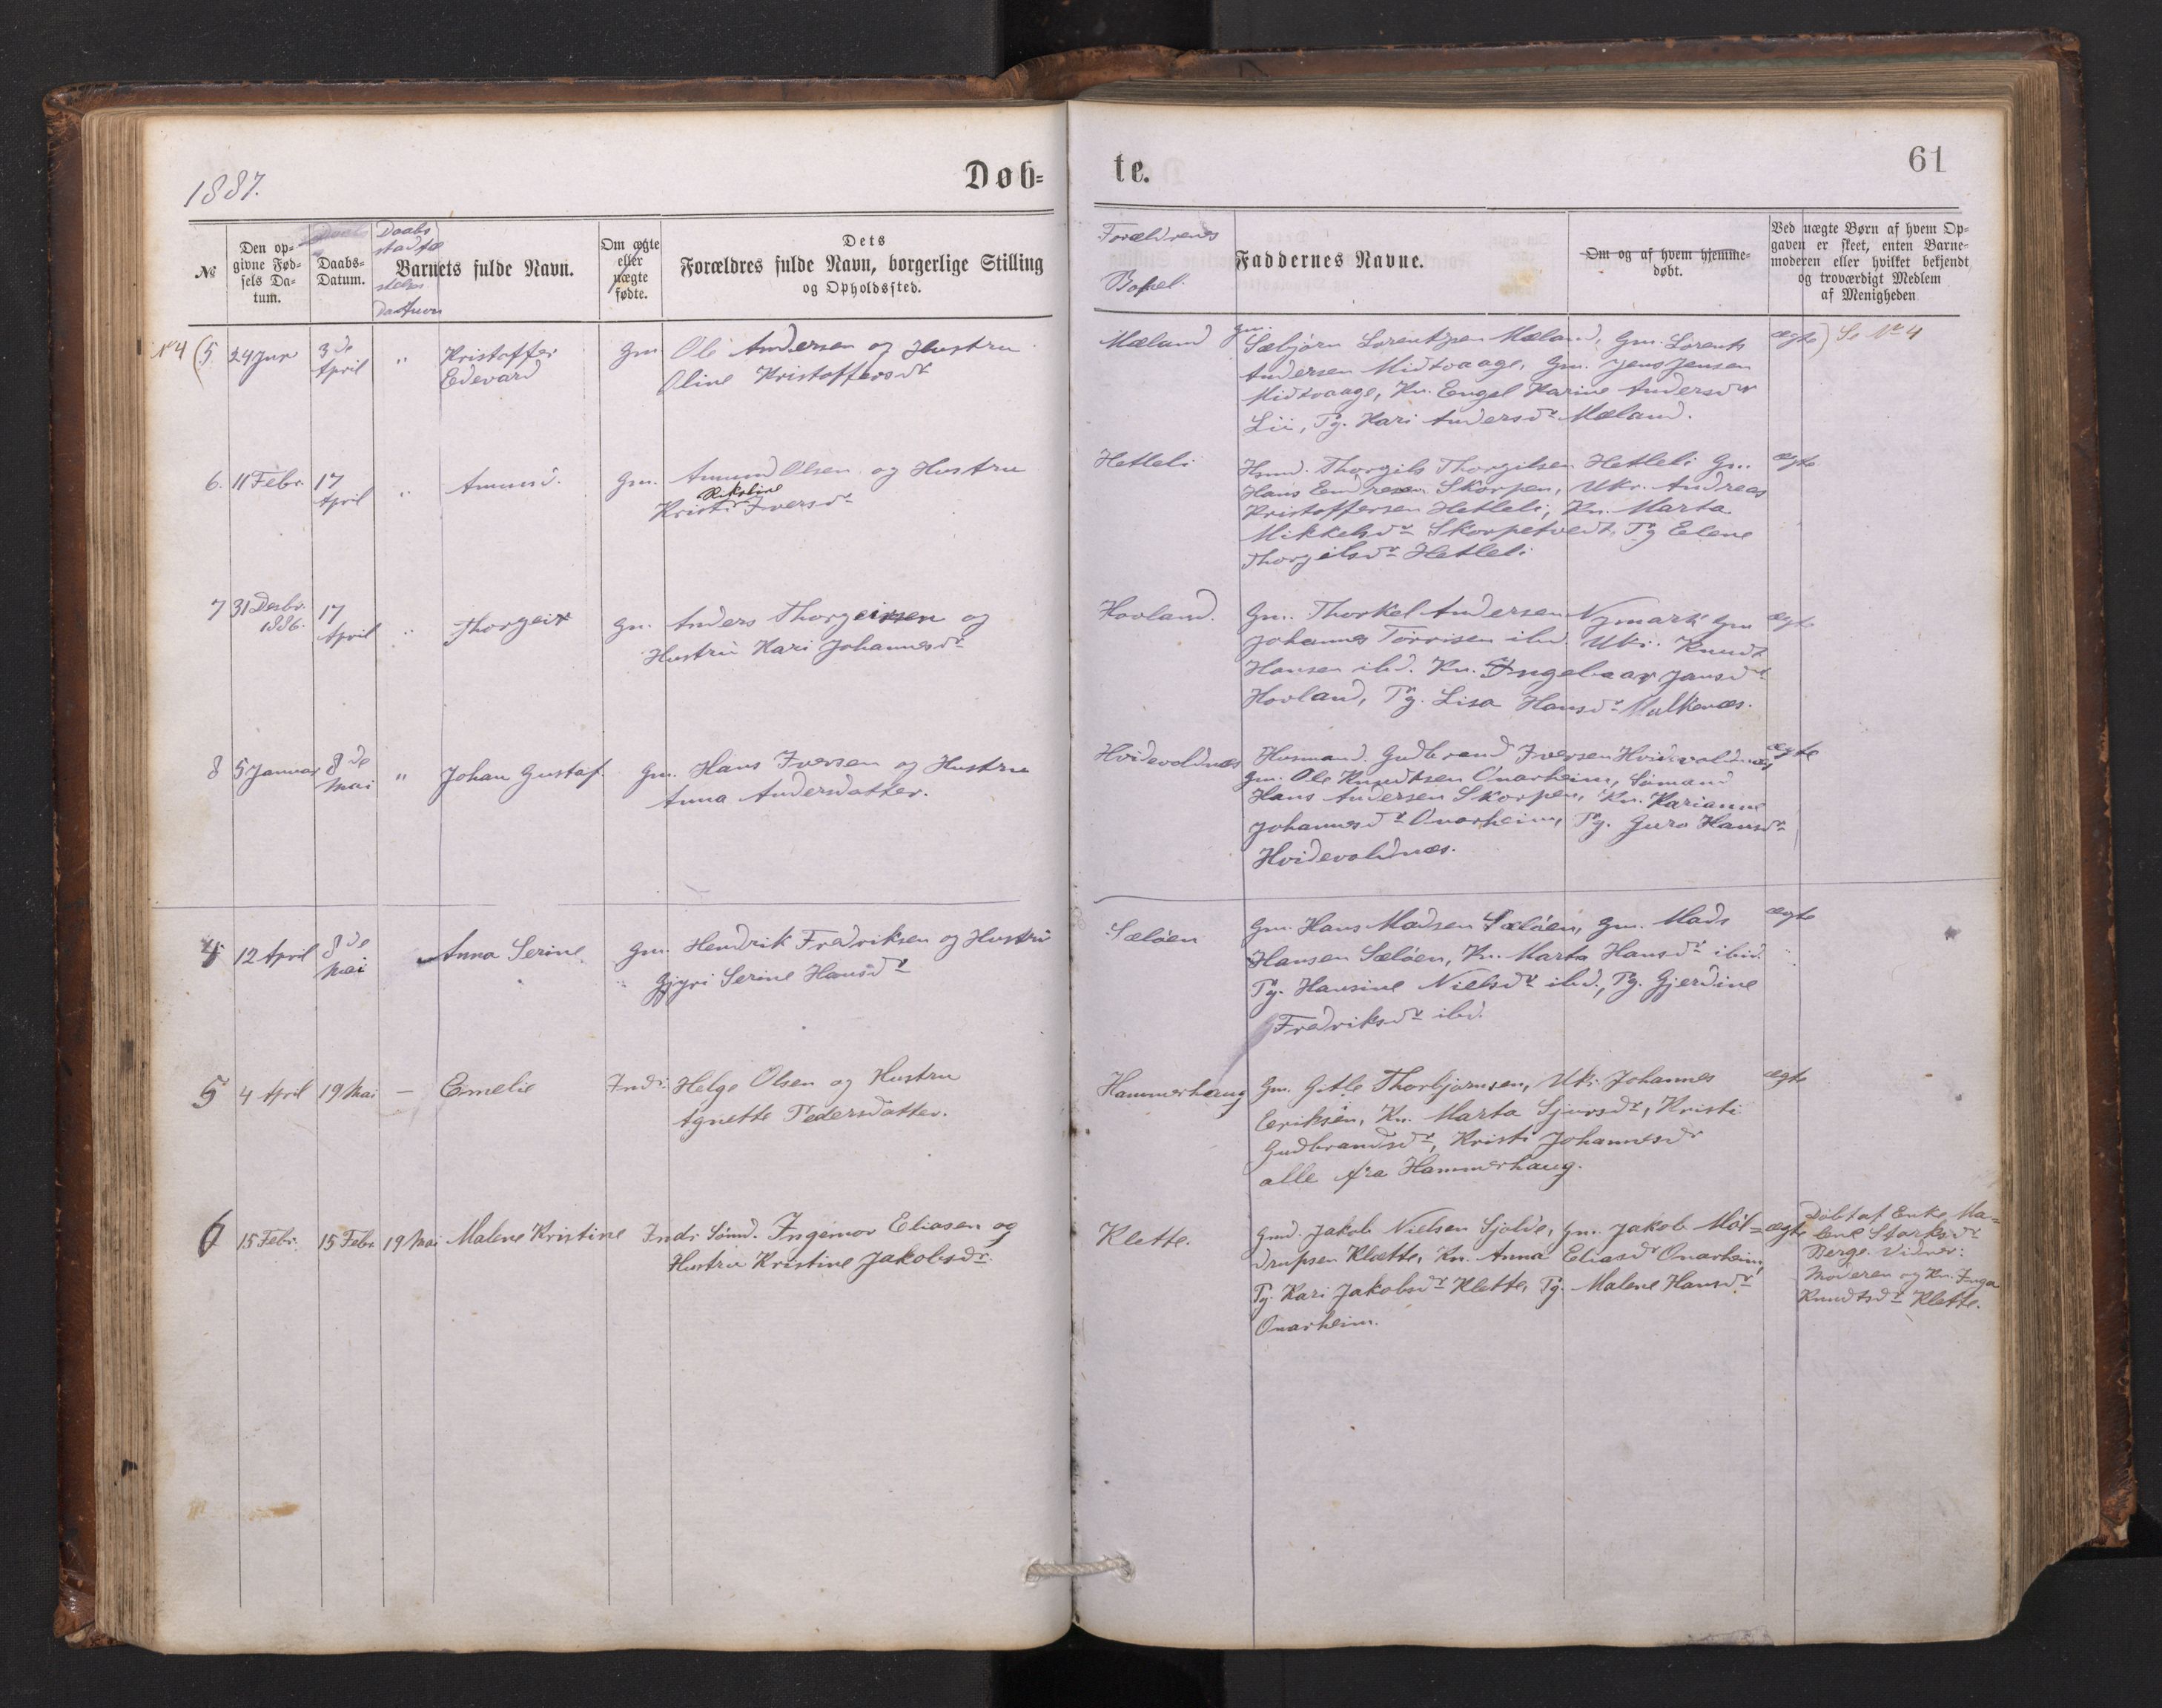 1887.
Døb=
te.
61
№
Den op=
givne Fød=
sels Da=
tum.
Daabs=
Datum.
Daabs
stadfæ
stelses
Datum
Barnets fulde Navn.
Om ægte
eller
uægte
fødte.
Dets
Forældres fulde Navn, borgerlige Stilling
og Opholdssted.
Forældrenes
Bopel.
Faddernes Navne.
Om og af hvem hjemme=
døbt.
Ved uægte Børn af hvem Op=
gaven er skeet, enten Barne=
moderen eller hvilket bekjendt
og troværdigt Medlem
af Menigheden
№ 4 (5 24 Jan 3de April " Kristoffer Edevard
Gm Ole Andersen og Hustru
Oline Kristoffersdr
Mæland
Gm. Sæbjørn Lorentzen Mæland, Gm. Lorents
Andersen Midtvaage, Gm. Jens Jensen
Midtvaage, Kn. Engel Karine Andersdr
Lii, Pg. Kari Andersdr Mæland.
ægte) Se № 4
6. 11 Febr. 17 April " Amund.
Gm. Amund Olsen og Hustru
Rikstine
Kristi Iversdr
Hetleli
Hsmd. Thorgils Thorgilsen Hetleli Gm.
Hans Endresen Skorpen, Ukr. Andreas
Kristoffersen Hetleli, Kn. Marta
Mikkelsdr Skorpetvedt, Pg Elene
Thorgilsdr Hetleli
ægte
7 31 Desbr. 1886. 17 April " Thorgeir
Gm. Anders Thorgeirsen og
Hustru Kari Johannesdr
Hovland.
Gm. Thorkel Andersen Nymark Gm
Johannes Torrisen ibd. Uki. Knudt
Hansen ibd. Kn. Ingebaar Jansdr
Hovland, Pg. Lisa Hansdr Malkenæs.
ægte
8 5 Januar 8de Mai " Johan Gustaf.
Gm. Hans Iversen og Hustru
Anna Andersdatter.
Hvidevoldnæs
Husmand. Gudbrand Iversen Hvidevoldnæs
Gm. Ole Knudtsen Onarheim, Sømand
Hans Andersen Skorpen, Kn. Karianne
Johannesdr Onarheim, Pg. Guro Hansdr
Hvidevoldnæs.
ægte
4 12 April 8de Mai Anna Serine
Gm. Hendrik Fredriksen og Hustru
Gjyri Serine Hansdr
Sæløen
Gm. Hans Madsen Sæløen, Gm. Mads
Hansen Sæløen, Kn. Marta Hansdr ibid.
Pg. Hansine Nielsdr ibd., Pg. Gjerdine
Fredriksdr ibd.
ægte
5 4 April 19 Mai — Emelie
Indr Helge Olsen og Hustru
Agnette Pedersdatter.
Hammerhaug
Gm. Gitle Thorbjørnsen, Uki. Johannes
Eeriksen, Kn. Marta Sjursdr, Kristi
Gudbrandsdr, Kristi Johannesdr
alle fra Hammerhaug.
ægte
6 15 Febr. 15 Febr 19 Mai Malene Kristine
Indr Sømd. Ingemor Eliasen og
Hustru Kristine Jakobsdr.
Klette.
Gmd. Jakob Nielsen Gjelde, Gm. Jakob Møl=
drupsen Klætte, Kn. Anna Eliasdr Onarheim,
Pg. Kari Jakobsdr Klette, Pg. Malene Hansdr
Onarheim.
ægte
Døbt af Enke Ma=
lene Storksdr
Berge. Vidner:
Moderen og Kn. Inga
Knudtsdr Klette.